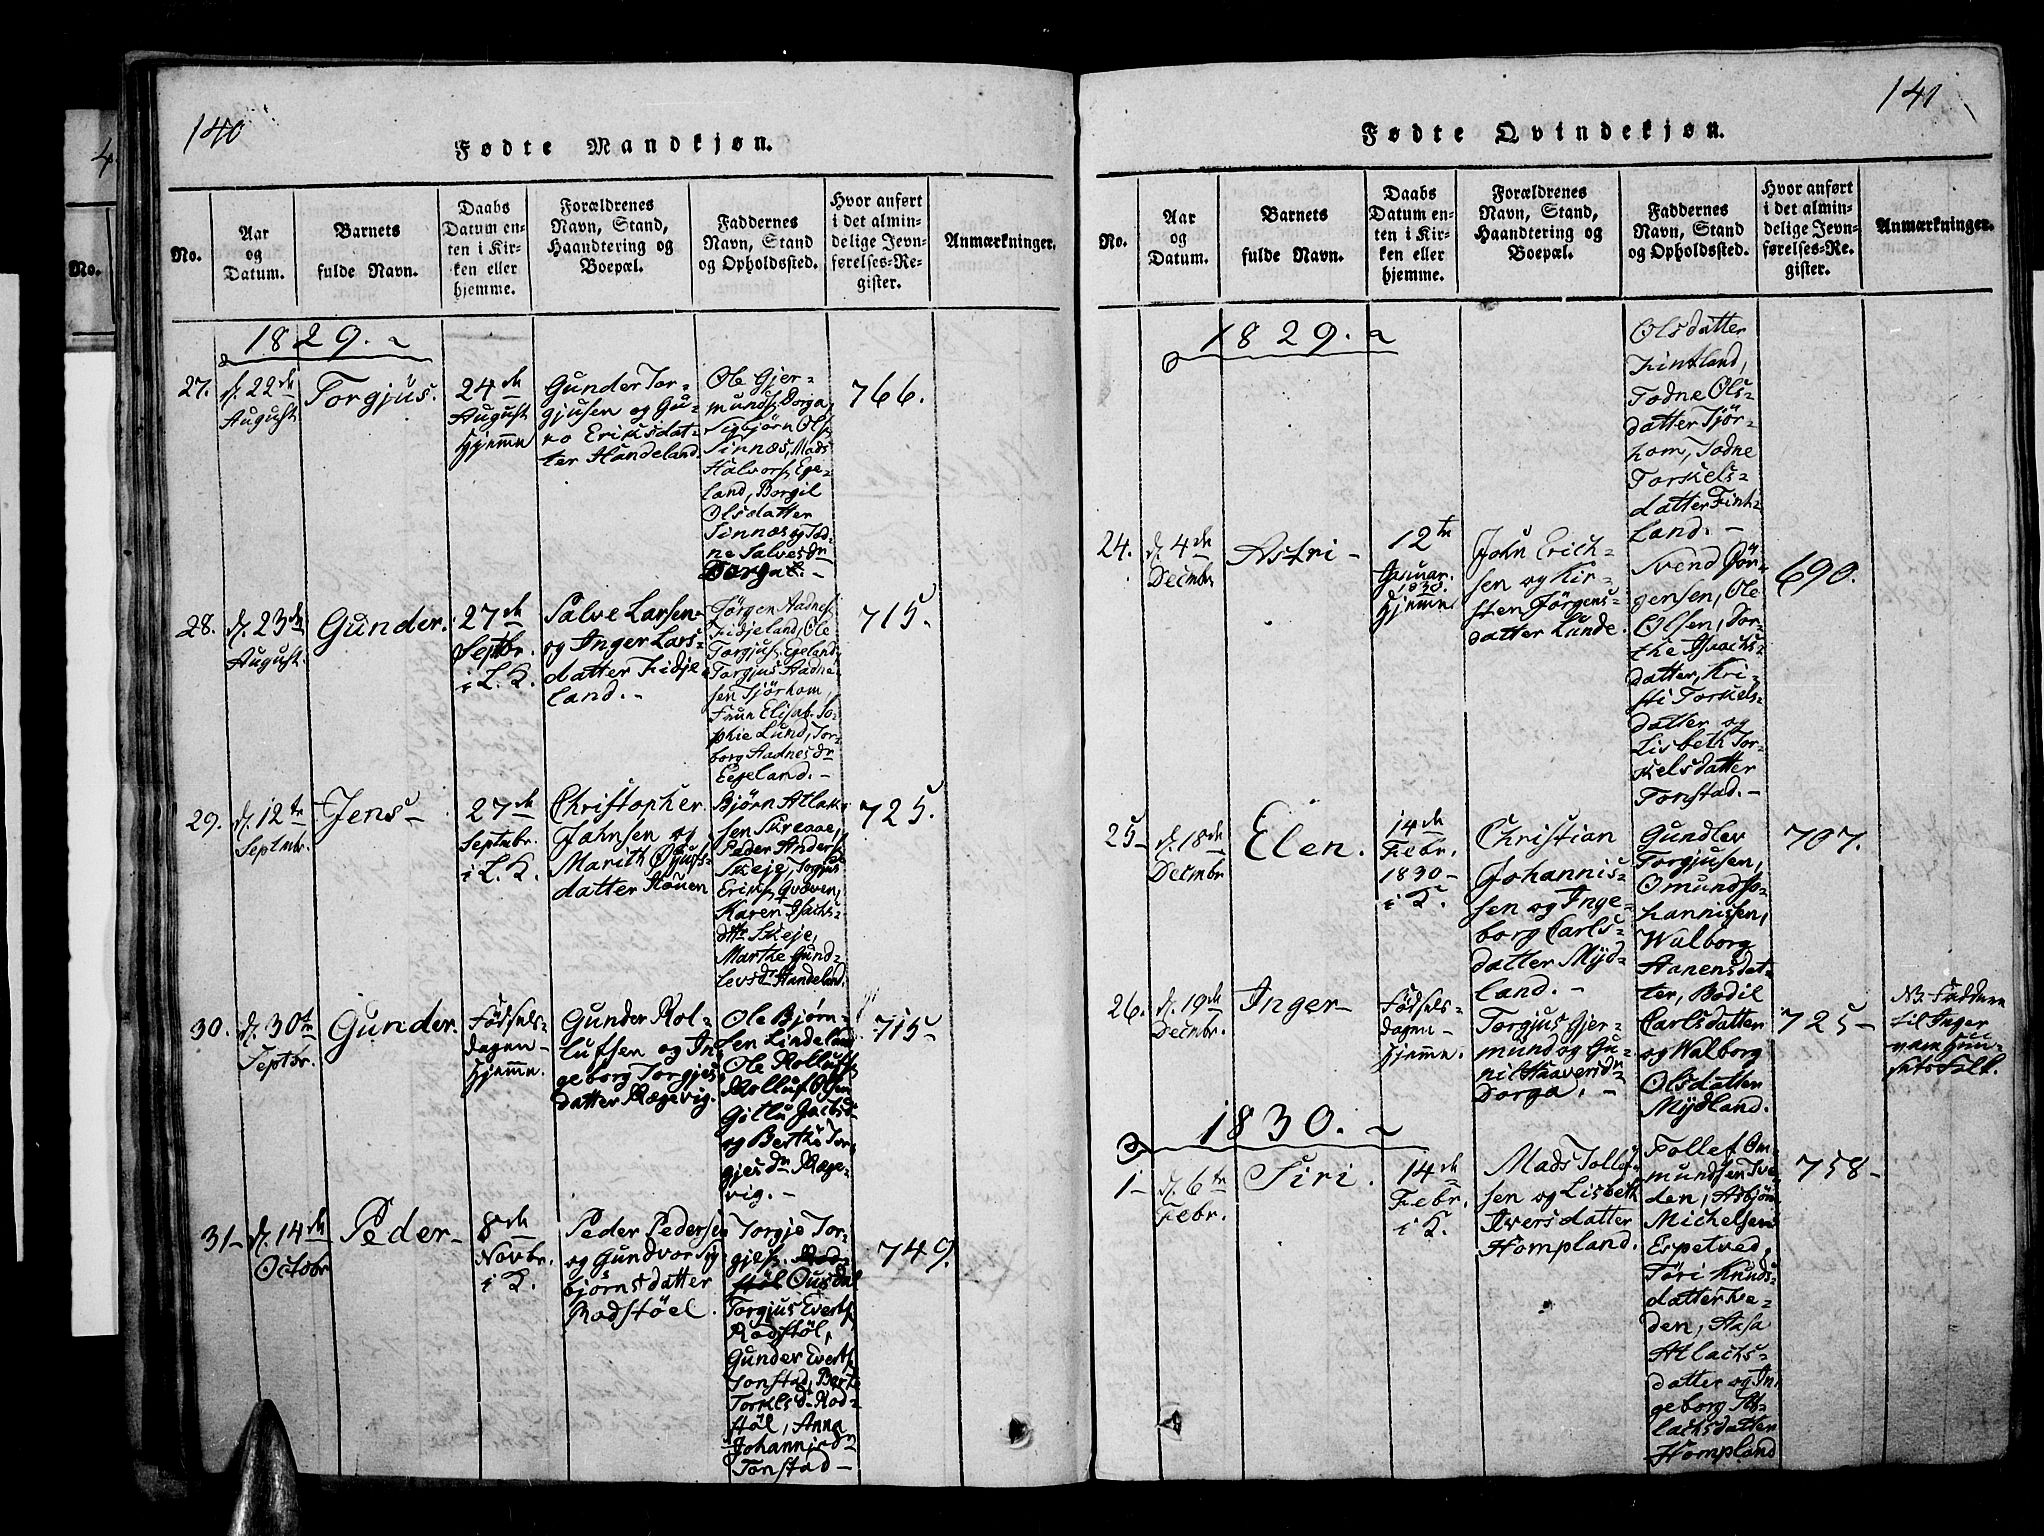 140
Fødte Mandkjøn.
No.
Aar
og
Datum.
Barnets
fulde Navn.
Daabs
Datum en-
ten i Kir-
ken eller
hjemme.
Forældrenes
Navn, Stand,
Haandtering og
Boepæl.
Faddernes
Navn, Stand
og Opholdssted.
Hvor anført
i det almin-
delige Jevn-
førelses-Re-
gister.
Anmærkninger.
1829.
27.
d. 22de
August
Torgjus.
24de
August
Hjemme
Gunder Tor-
gjusen og Gu-
ro Eriksdat-
ter Handeland
Ole Gjer-
munds. Dorga,
Sigbjørn Ols.
Sinnæs, Mads
Halvors. Ege-
land, Borgil
Olsdatter
Sinnæs og Tod-
ne Salvesdr
Dorga. -
766.
28.
d. 23de
August
Gunder.
27de
Septbr.
i L. K.
Salve Larsen
og Inger Lars-
datter Fidje-
land. -
Jørgen Aadnes.
Fidjeland, Ole
Torgjus. Egeland
Torgjus Aadne-
sen Tjørhom,
Frue Elisab. So-
phie Lund, Tor-
borg Aadnesdr
Egeland. -
715.
29.
d. 12te
Septmbr.
Jens
27de
Septmbr.
i L. K.
Christopher
Jahnsen og
Marith
datter Houen
Bjørn Atlak-
sen Skreaae,
Peder Anders.
Skeje, Torgjus
Eriks. Qvæven,
Karen Isachs-
dttr Skeje,
Marthe Gund-
levsdr Handeland.
725.
30.
d. 30te
Septbr.
Gunder.
Fødsels-
dagen -
Hjemme.
Gunder Rol-
lufsen og In-
geborg Torgjes-
datter Rægevig.
Ole Bjørn-
sen Lindeland
Ole Rollufs.
Rolluf Olsen
Gitlu
og Berthe Tor-
gjesdr. Ræge-
vig. -
715
31
d. 14de
Octobr
Peder
8de
Novbr.
i K.
Peder Pedersen
og Gundvor Sig-
bjørnsdatter
Rodstøel.
Torgje Tor-
gjes. Rod-
støl Ousdal
Torgjus Everts.
Rodstøl,
Gunder Everts.
Tonstad, Berte
Torkelsdr Rod-
støl, Anna
Johannisdr
Tonstad -
749.
141
Fødte Qvindekjøn.
No.
Aar
og
Datum.
Barnets
fulde Navn.
Daabs
Datum en-
ten i Kir-
ken eller
hjemme.
Forældrenes
Navn, Stand,
Haandtering og
Boepæl.
Faddernes
Navn, Stand
og Opholdssted.
Hvor anført
i det almin-
delige Jevn-
førelses-Re-
gister.
Anmærkninger.
1829.
Olsdatter
Fintland,
Todne Ols-
datter Tjör-
hom, Todne
Torkels-
datter Fint-
land. -
24.
d. 4de
Decmbr
Astri -
12te
Januar.
1830.
Hjemme.
John Erich-
sen og Kir-
sten Jörgens-
datter Lunde.
Svend Jör-
gensen, Ole
Olsen, Dor-
the Isachs-
datter, Kri-
sti Torkels-
datter og
Lisbeth Tor-
kelsdatter
Tonstad. -
690.
25
d. 18de
Decmbr
Elen.
14de
Febr.
1830 -
i K.
Christian
Johannis-
sen og Inge-
borg Carls-
datter Mýd-
land. -
Gundlev
Torgjusen,
Omund Jo-
hannissen,
Walborg
Hanensdat-
ter, Bodil
Carlsdatter
og Walborg
Olsdatter
Mýdland.
707.
26.
d. 19de
Decmbr.
Inger
Födsels-
dagen -
Hjemme.
Torgjus Gjer-
mund og Gu-
nil Haaversdr
Dorga. -
725
NB. Faddere
til Inger
vare Huu-
sets Folk.
1830.
1
d. 6te
Febr.
Siri.
14de
Febr.
i K.
Mads Tollef-
sen og Lisbeth
Iversdatter
Hompland.
Tollef Om-
mundsen Sve-
den, Asbjörn
Michelsen
Espetved,
Töri Knuds-
datter Sve-
den, Aasa
Atlachs-
datter og In-
geborg At-
lachsdatter
Hompland
758